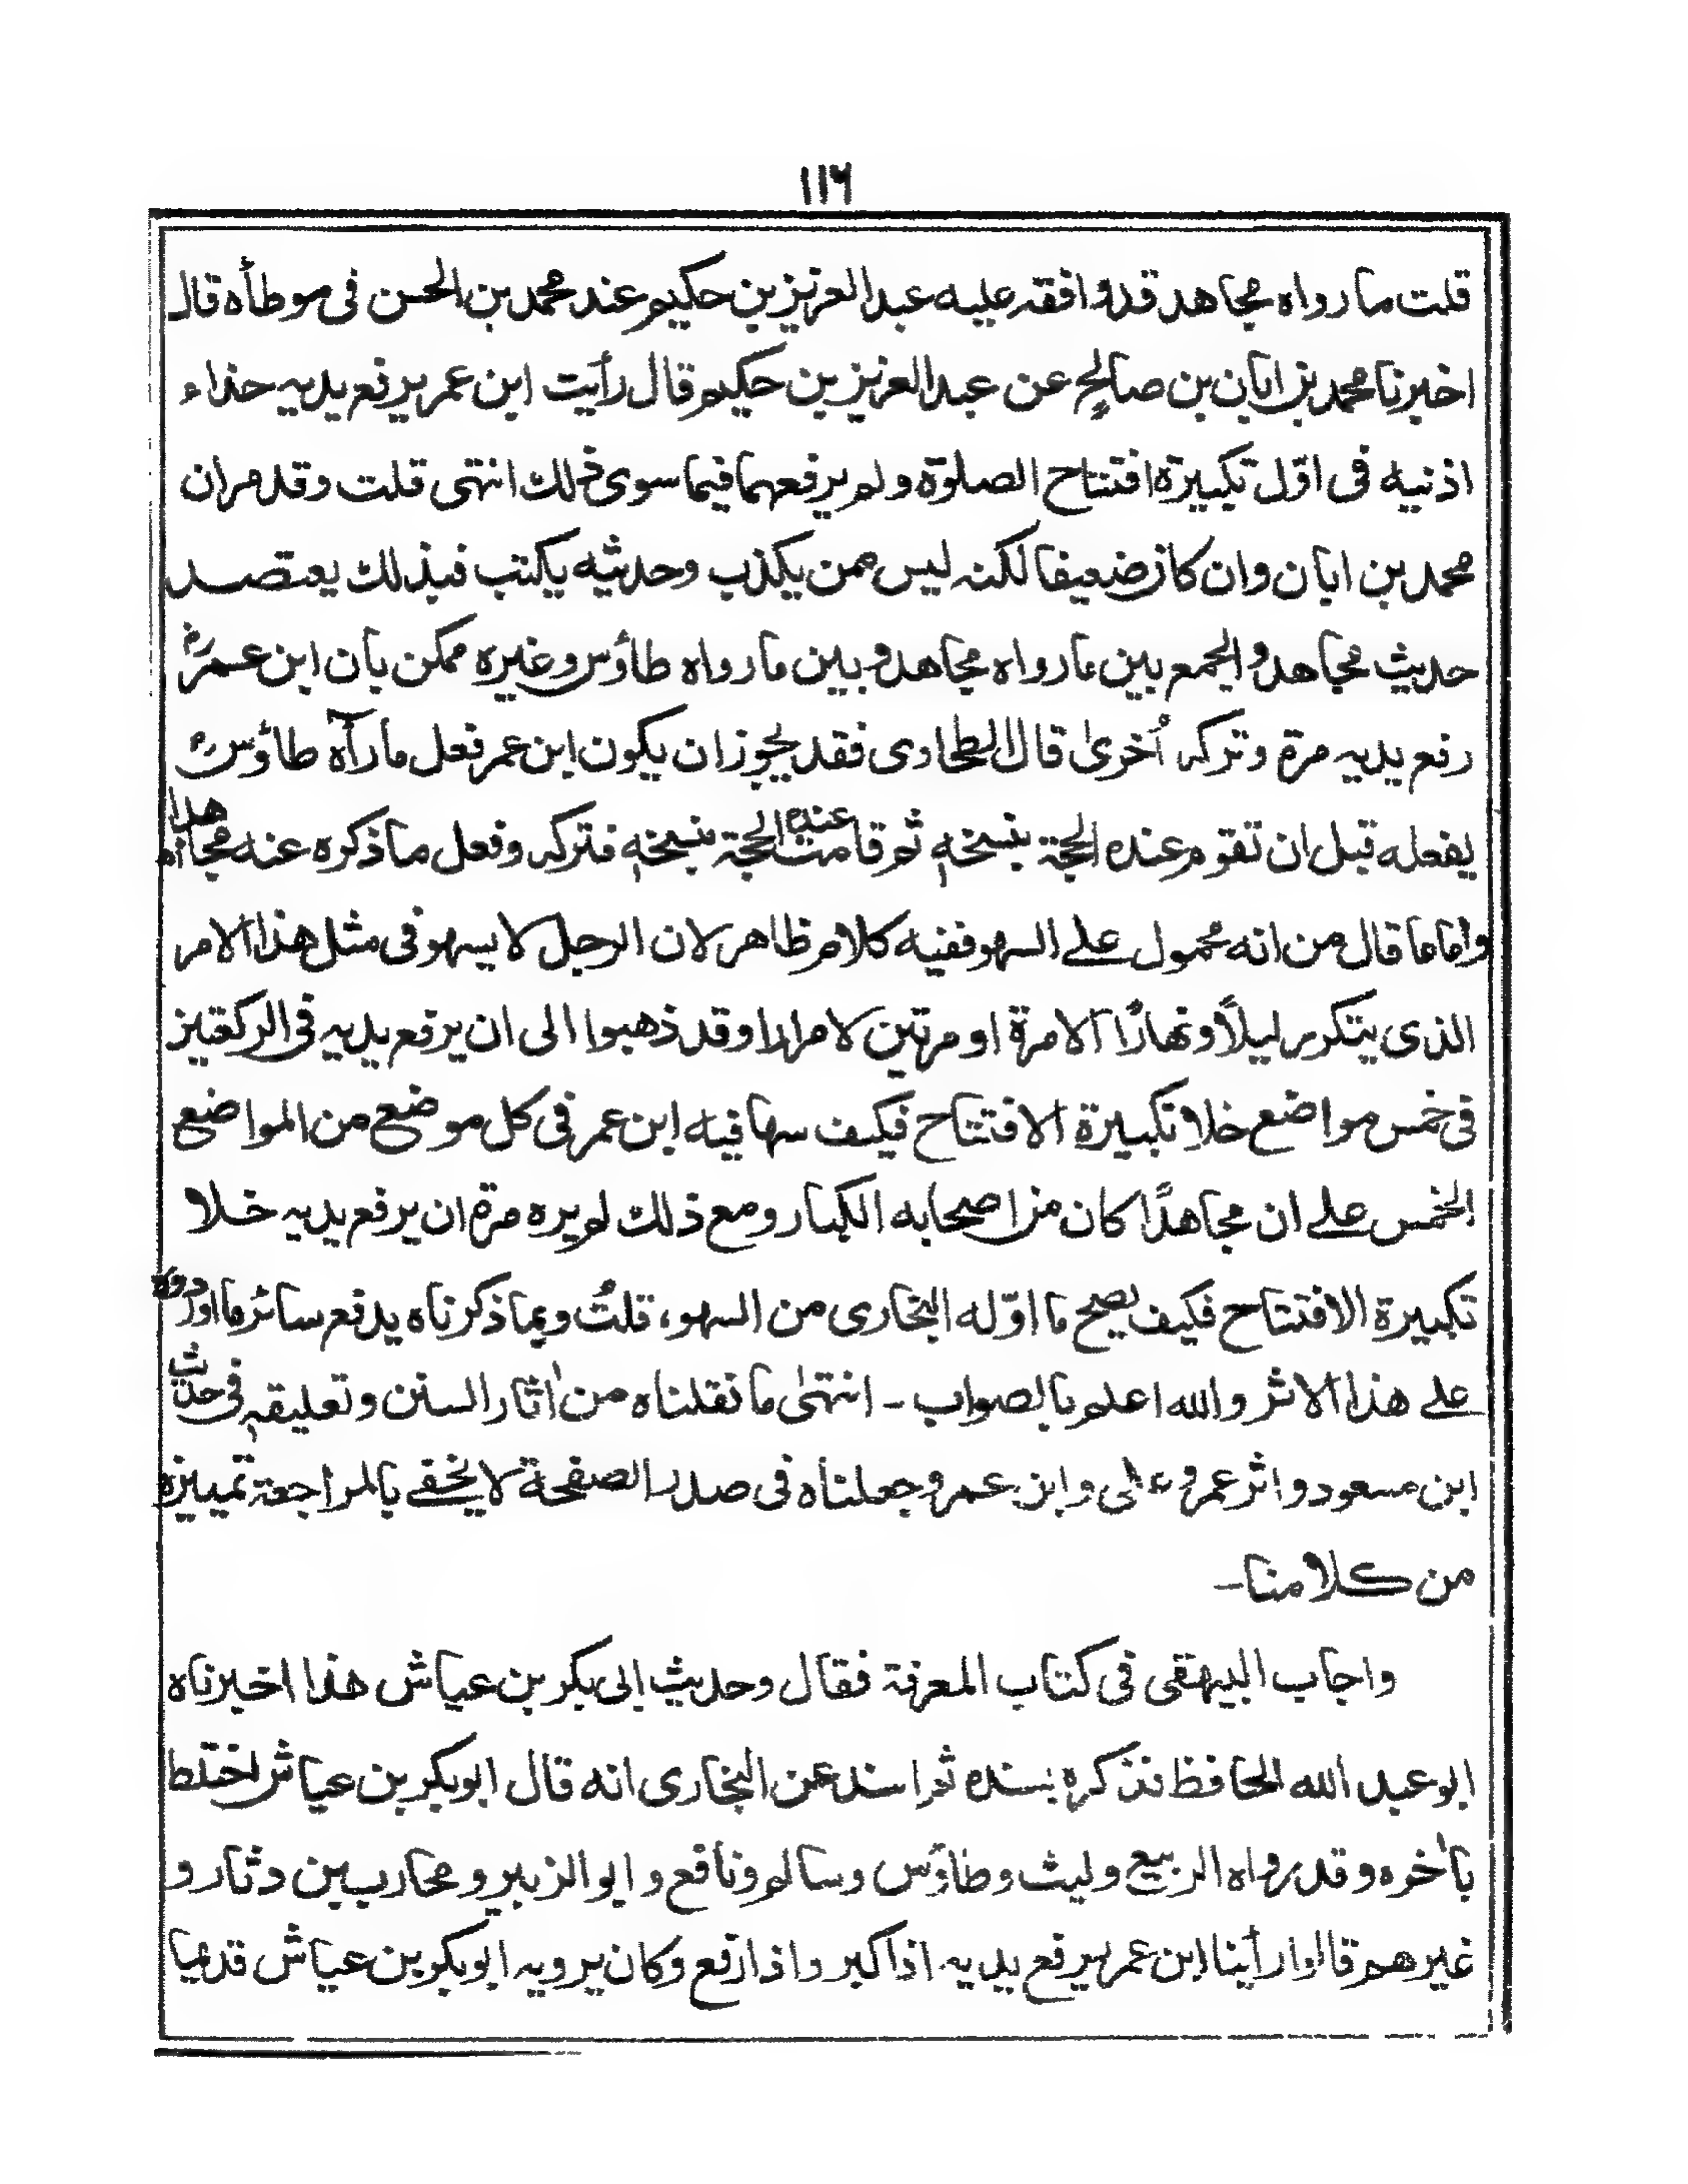 ۱۱۶
قلت ما رواه مجاهد قد وافقه عليه عبد العزيز بن حكيم عند محمد بن الحسن فى موطأه قال
اخبرنا محمد بن ابان بن صالح عن عبد العزيز بن حكيم قال رأيت ابن عمر يرفع يديه حذاء
اذنيه فى اوّل تكبيرة افتتاح الصلوٰة ولم يرفعهما فيما سوى ذلك انتهى قلت وقد مر ان
محمد بن ابان وان كان ضعيفا لكنه ليس ممن يكذب وحديثه يكتب فبذلك يعتضد
حديث مجاهد والجمع بين ما رواه مجاهد و بين ما رواه طاؤس وغيره ممكن بان ابن عمرؓ
رفع يديه مرة وتركه اُخرىٰ قال الطحاوى فقد يجوز ان يكون ابن عمر فعل ما رآه طاؤسؒ
يفعله قبل ان تقوم عنده الحجة بنسخه ثم قامت عنده الحجة بنسخه فتركه وفعل ما ذكره عنه مجاهد اه
واما ما قال من انه محمول على السهو ففيه كلام ظاهر لان الرجل لا يسهو فى مثل هذا الامر
الذى يتكرر ليلاً ونهارًا الا مرة او مرتين لا مرارا وقد ذهبوا الى ان يرفع يديه فى الركعتين
فى خمس مواضع خلا تكبيرة الافتتاح فكيف سها فيه ابن عمر فى كل موضع من المواضع
الخمس على ان مجاهدًا كان من اصحابه الكبار ومع ذلك لم يره مرة ان يرفع يديه خلا
تكبيرة الافتتاح فكيف يصح ما اوّله البخارى من السهو، قلتُ وبما ذكرناه يدفع سائر ما اوردوه
على هذا الاثر والله اعلم بالصواب - انتهىٰ ما نقلناه من اٰثار السنن وتعليقه فى حديث
ابن مسعود واثر عمر وعلى وابن عمر وجعلناه فى صدر الصفحة لا يخفى بالمراجعة تمييزه
من كلامنا-
واجاب البيهقى فى كتاب المعرفة فقال وحديث ابى بكر بن عياش هذا اخبرناه
ابو عبد الله الحافظ فذكره بسنده ثم اسند عن البخارى انه قال ابو بكر بن عياش اختلط
باٰخره وقد رواه الربيع وليث وطاؤس وسالم ونافع و ابو الزبير و محارب بن دثار و
غيرهم قالوا رأينا ابن عمر يرفع يديه اذا كبر واذا رفع وكان يرويه ابو بكر بن عياش قديما